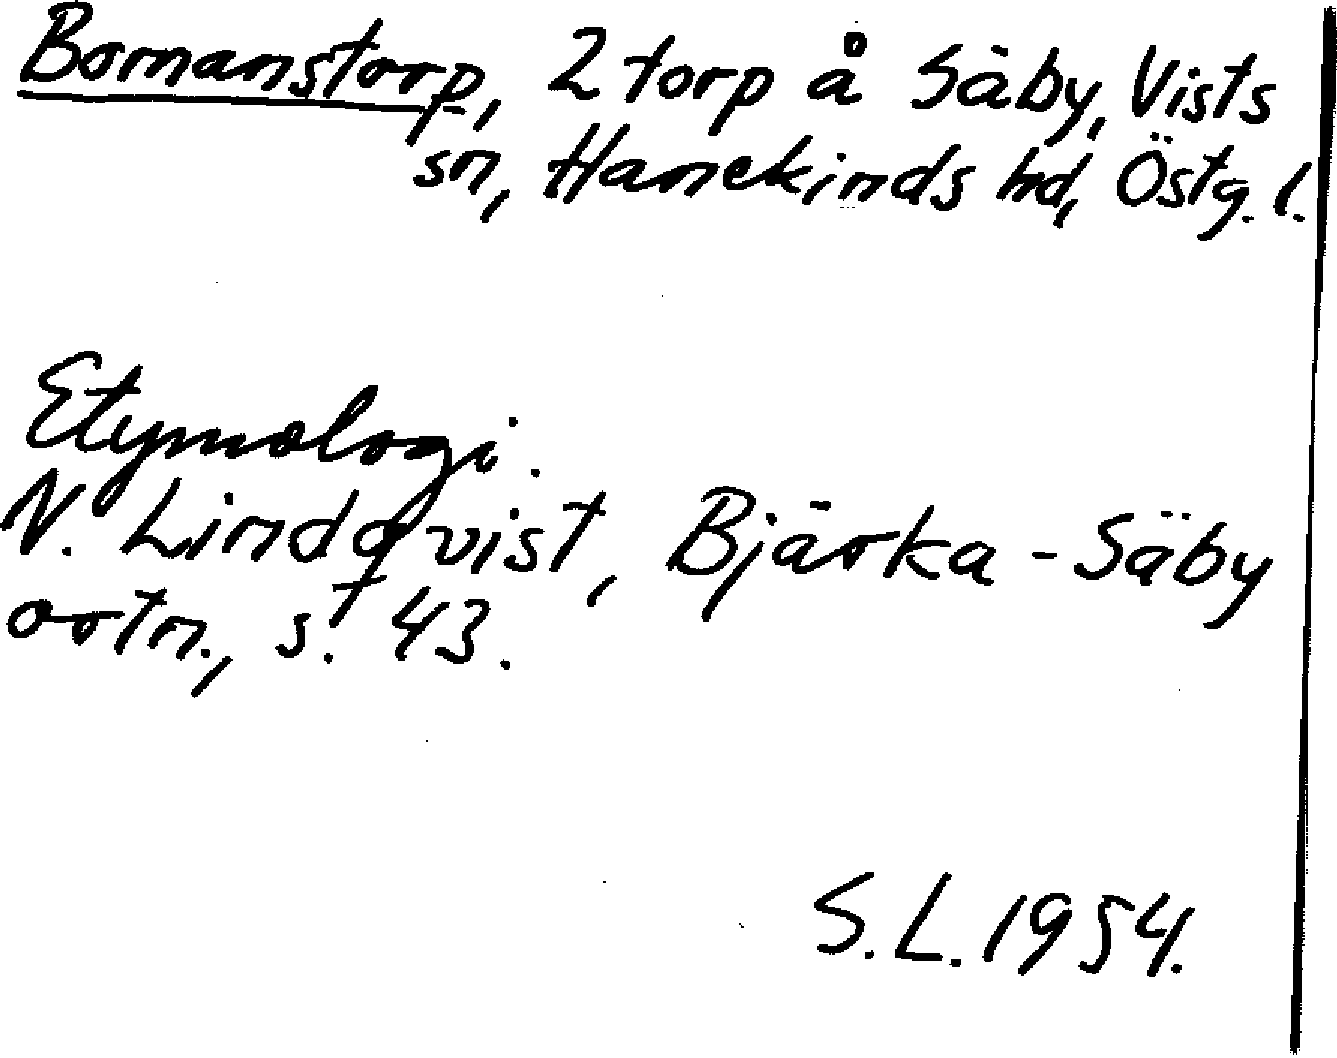 Bomanstorp, 2 torp å Säby, Vists
sn, Hanekinds hd, Östg. l.
Etymologi.
N. Lindqvist, Bjärka-Säby
ortn., s. 43.
S.L. 1954.